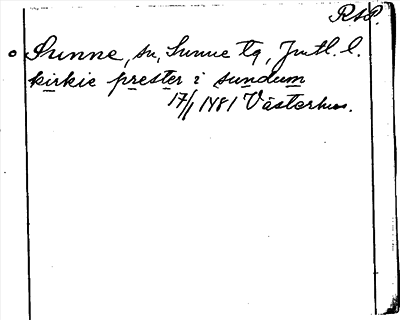 RAP.
Sunne, sn, Sunne tg, Jmtl. l.
kirkie prester i sundum
17/1 1481 Västerhus.